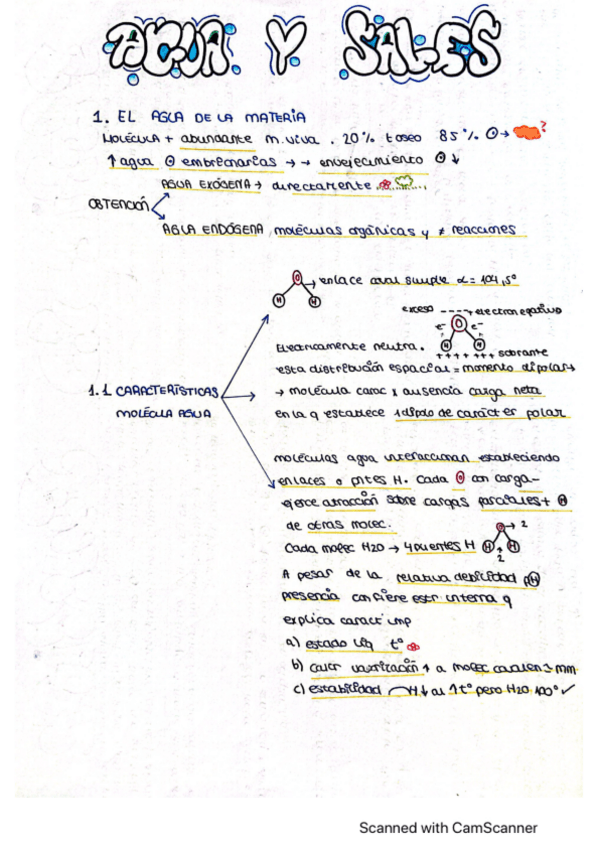 AGUA Y SALES
1. EL AGUA DE LA MATERIA
MOLÉCULA + abundante m. viva . 20% t oseo 85%
↑ agua embrionarias → → envejecimiento ↓
AGUA EXÓGENA → directamente
OBTENCIÓN
AGUA ENDÓGENA, moléculas orgánicas y ≠ reacciones
O
→ enlace coval simple α = 104,5º
H H
exceso ---- + electronegativo
e- O e-
Electricamente neutra. H H
+ + + + + + + sobrante
esta distribución espacial = momento dipolar →
1.1 CARACTERÍSTICAS
→ molécula carac x ausencia carga neta
MOLÉCULA AGUA
en la q establece 1 dipolo de carácter polar
moléculas agua interaccionan estableciendo
enlaces o pntes H. Cada O con carga -
ejerce atracción sobre cargas parciales + H
de otras molec.
O → 2
Cada molec H2O → 4 puentes H H H
2
A pesar de la relativa debilidad pH
presencia confiere estr interna q
explica caract imp
a) estado líq tº
b) calor vaporización ↑ a molec
c) estabilidad H ↓ al ↑ tº pero H2O 100º ✓
Scanned with CamScanner